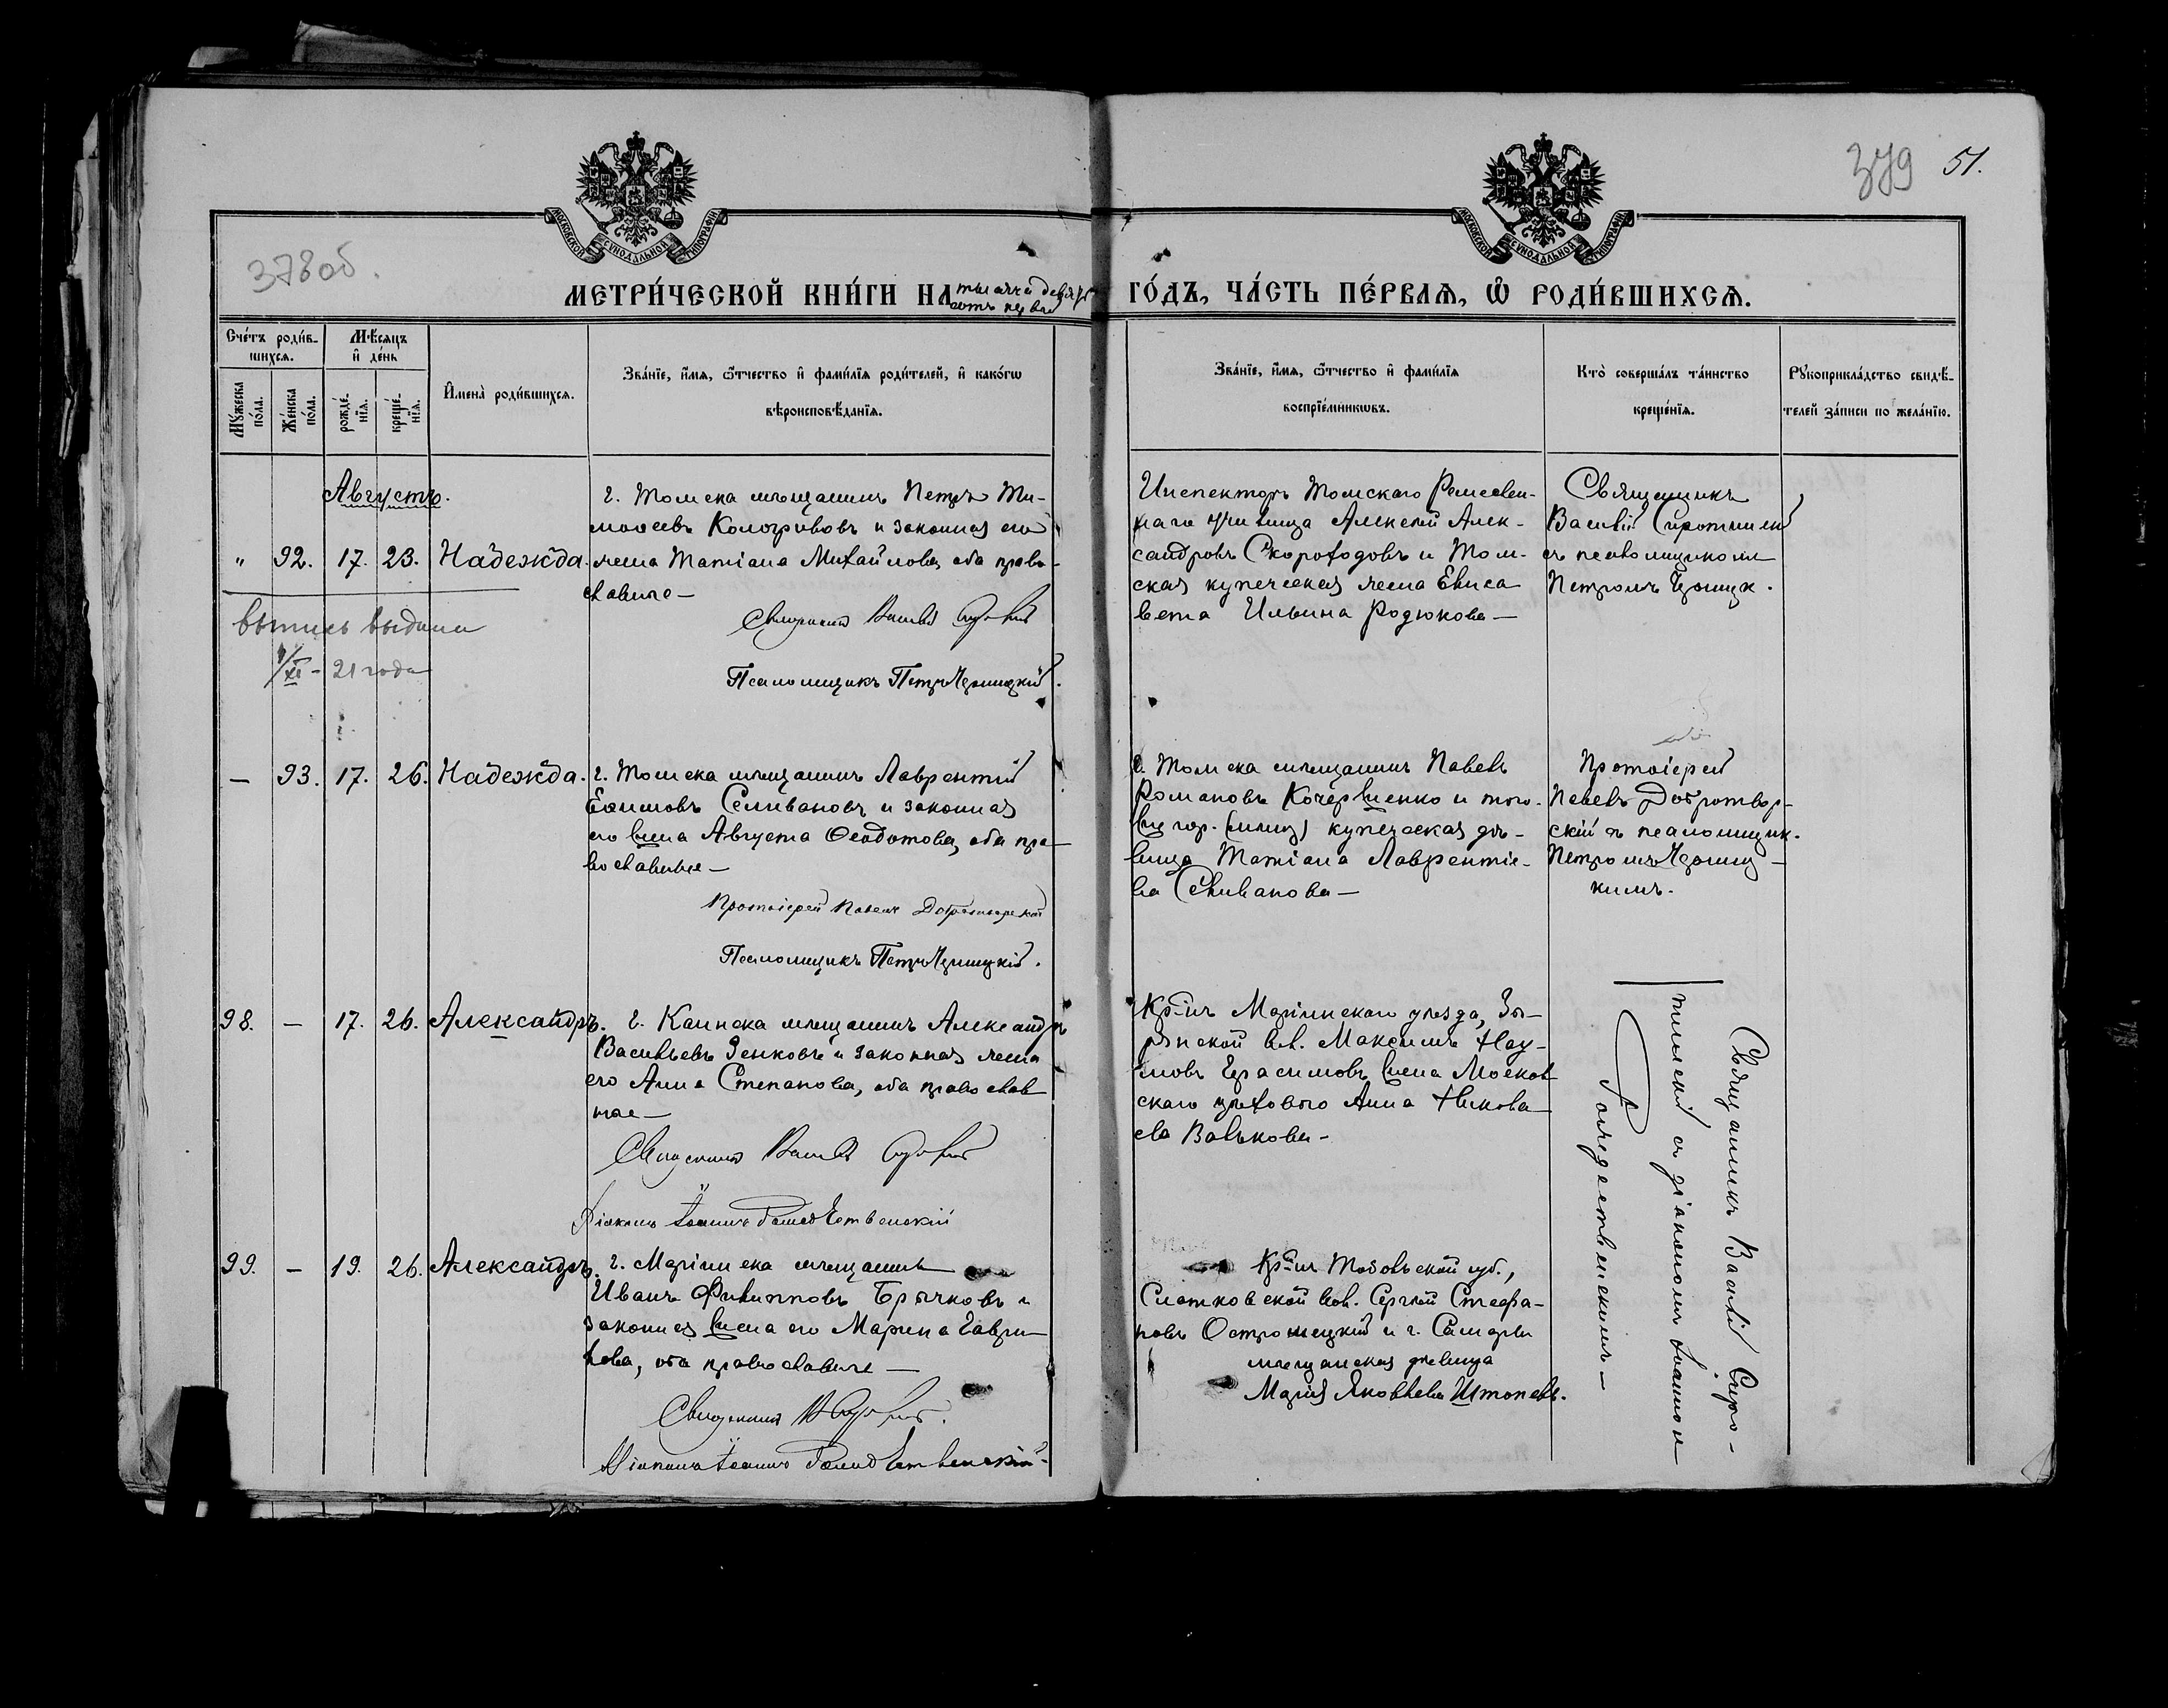 379 51.
378об.
МОСКОВСКОЙ СѴНОДАЛЬНОЙ ТИПОГРАФІИ
МОСКОВСКОЙ СѴНОДАЛЬНОЙ ТИПОГРАФІИ
МЕТРИ́ЧЕСКОЙ КНИ́ГИ НА тысяча девять
сотъ первый
ГО́ДЪ, ЧА́СТЬ ПЕ́РВАЯ, Ѽ РОДИ́ВШИХСЯ.
Сче́тъ роди́в-
шихся.
Мѣ́сяцъ
и҆ де́нь
Мꙋ́жеска по́ла.
Же́нска по́ла.
рожде́-
нїя.
креще́-
нїя.
И҆мена̀ роди́вшихся.
Зва́нїе, и҆́мя, ѻ҆́тчество и҆ фами́лїя роди́телей, и҆ како́гѡ
вѣроисповѣ́данїя.
Зва́нїе, и҆́мя, ѻ҆́тчество и҆ фами́лїя
воспрїе́мникѡвъ.
Кто̀ соверша́лъ та́инство
креще́нїя.
Рꙋкоприкла́дство свидѣ́-
телей за́писи по жела́нїю.
Августъ.
" 92. 17. 23. Надежда.
г. Томска мѣщанинъ Петръ Ти-
моѳеевъ Кологривовъ и законная его
жена Татіана Михайлова, оба право-
славные —
Священникъ Василій
Псаломщикъ Петръ
Инспекторъ Томскаго Ремеслен-
наго училища Алексѣй Алек-
сандровъ Скороходовъ и Том-
ская купеческая жена Елиса
вета Ильина Родюкова —
Священникъ
Василій Сиротинскій
съ псаломщикомъ
Петромъ
выпись выдана
1/XI - 21 года
— 93. 17. 26. Надежда.
г. Томска мѣщанинъ Лаврентій
Ефимовъ Селивановъ и законная
его жена Августа Ѳеодотова, оба пра-
вославные —
Протоіерей Павелъ Добротворскій
Псаломщикъ Петръ
г. Томска мѣщанинъ Павелъ
Романовъ и того-
же гор. купеческая дѣ-
вица Татіана Лаврентіе-
ва Селиванова —
Протоіерей
Павелъ Добротвор-
скій съ псаломщик.
Петромъ
кимъ.
98. — 17. 26. Александръ.
г. Каинска мѣщанинъ Александръ
Васильевъ Зенковъ и законная жена
его Анна Степанова, оба православ
ные —
Священникъ Василій
Діаконъ Іоаннъ Рождественскій
Кр-нъ Маріинскаго уѣзда, Зы-
рянской вол. Максимъ Нау-
мовъ Герасимовъ жена Москов
скаго цехового Анна Никола-
ева Волькова -
Священникъ Василій Сиро-
тинскій съ діакономъ Іоанном
Рождественскимъ —
99. — 19. 26. Александръ.
г. Маріинска мѣщанинъ
Иванъ Филипповъ Брычковъ и
законная жена его Марина Гаври-
лова, оба православные —
Священникъ
Діаконъ Іоаннъ Рождественскій.
Кр-нъ Тобольской губ.,
Слатковской вол. Сергѣй Стефа-
новъ и г. Самары
мѣщанская дѣвица
Марія Яковлева